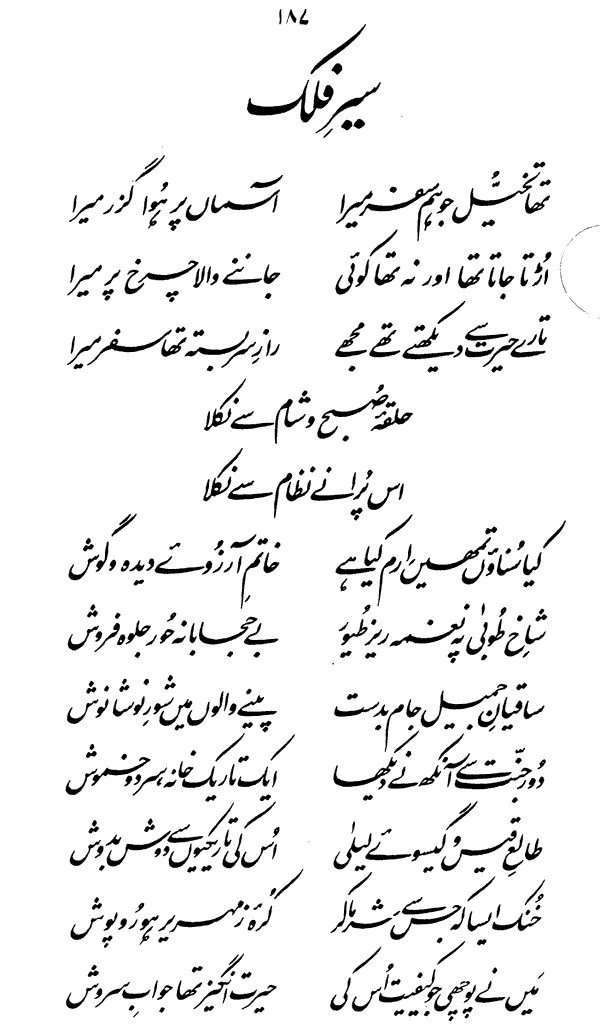 ۱۸۷
سیرِ فلک
تھا تخیُّل جو ہم سفر میرا آسماں پر ہُوا گزر میرا
اُڑتا جاتا تھا اور نہ تھا کوئی جاننے والا چرخ پر میرا
تارے حیرت سے دیکھتے تھے مجھے رازِ سربستہ تھا سفر میرا
حلقۂ صُبح و شام سے نکلا
اس پُرانے نظام سے نکلا
کیا سُناؤں تمھیں اِرم کیا ہے خاتمِ آرزُوئے دیدہ و گوش
شاخِ طُوبیٰ پہ نغمہ ریز طُیور بے حجابانہ حُور جلوہ فروش
ساقیانِ جمیل جام بدست پینے والوں میں شورِ نوشانوش
دُور جنّت سے آنکھ نے دیکھا ایک تاریک خانہ سرد و خموش
طالعِ قیس و گیسوئے لیلیٰ اُس کی تاریکیوں سے دوش بدوش
خُنک ایسا کہ جس سے شرما کر کُرۂ زمہریر ہو رُوپوش
مَیں نے پوچھی جو کیفیت اُس کی حیرت انگیز تھا جوابِ سروش